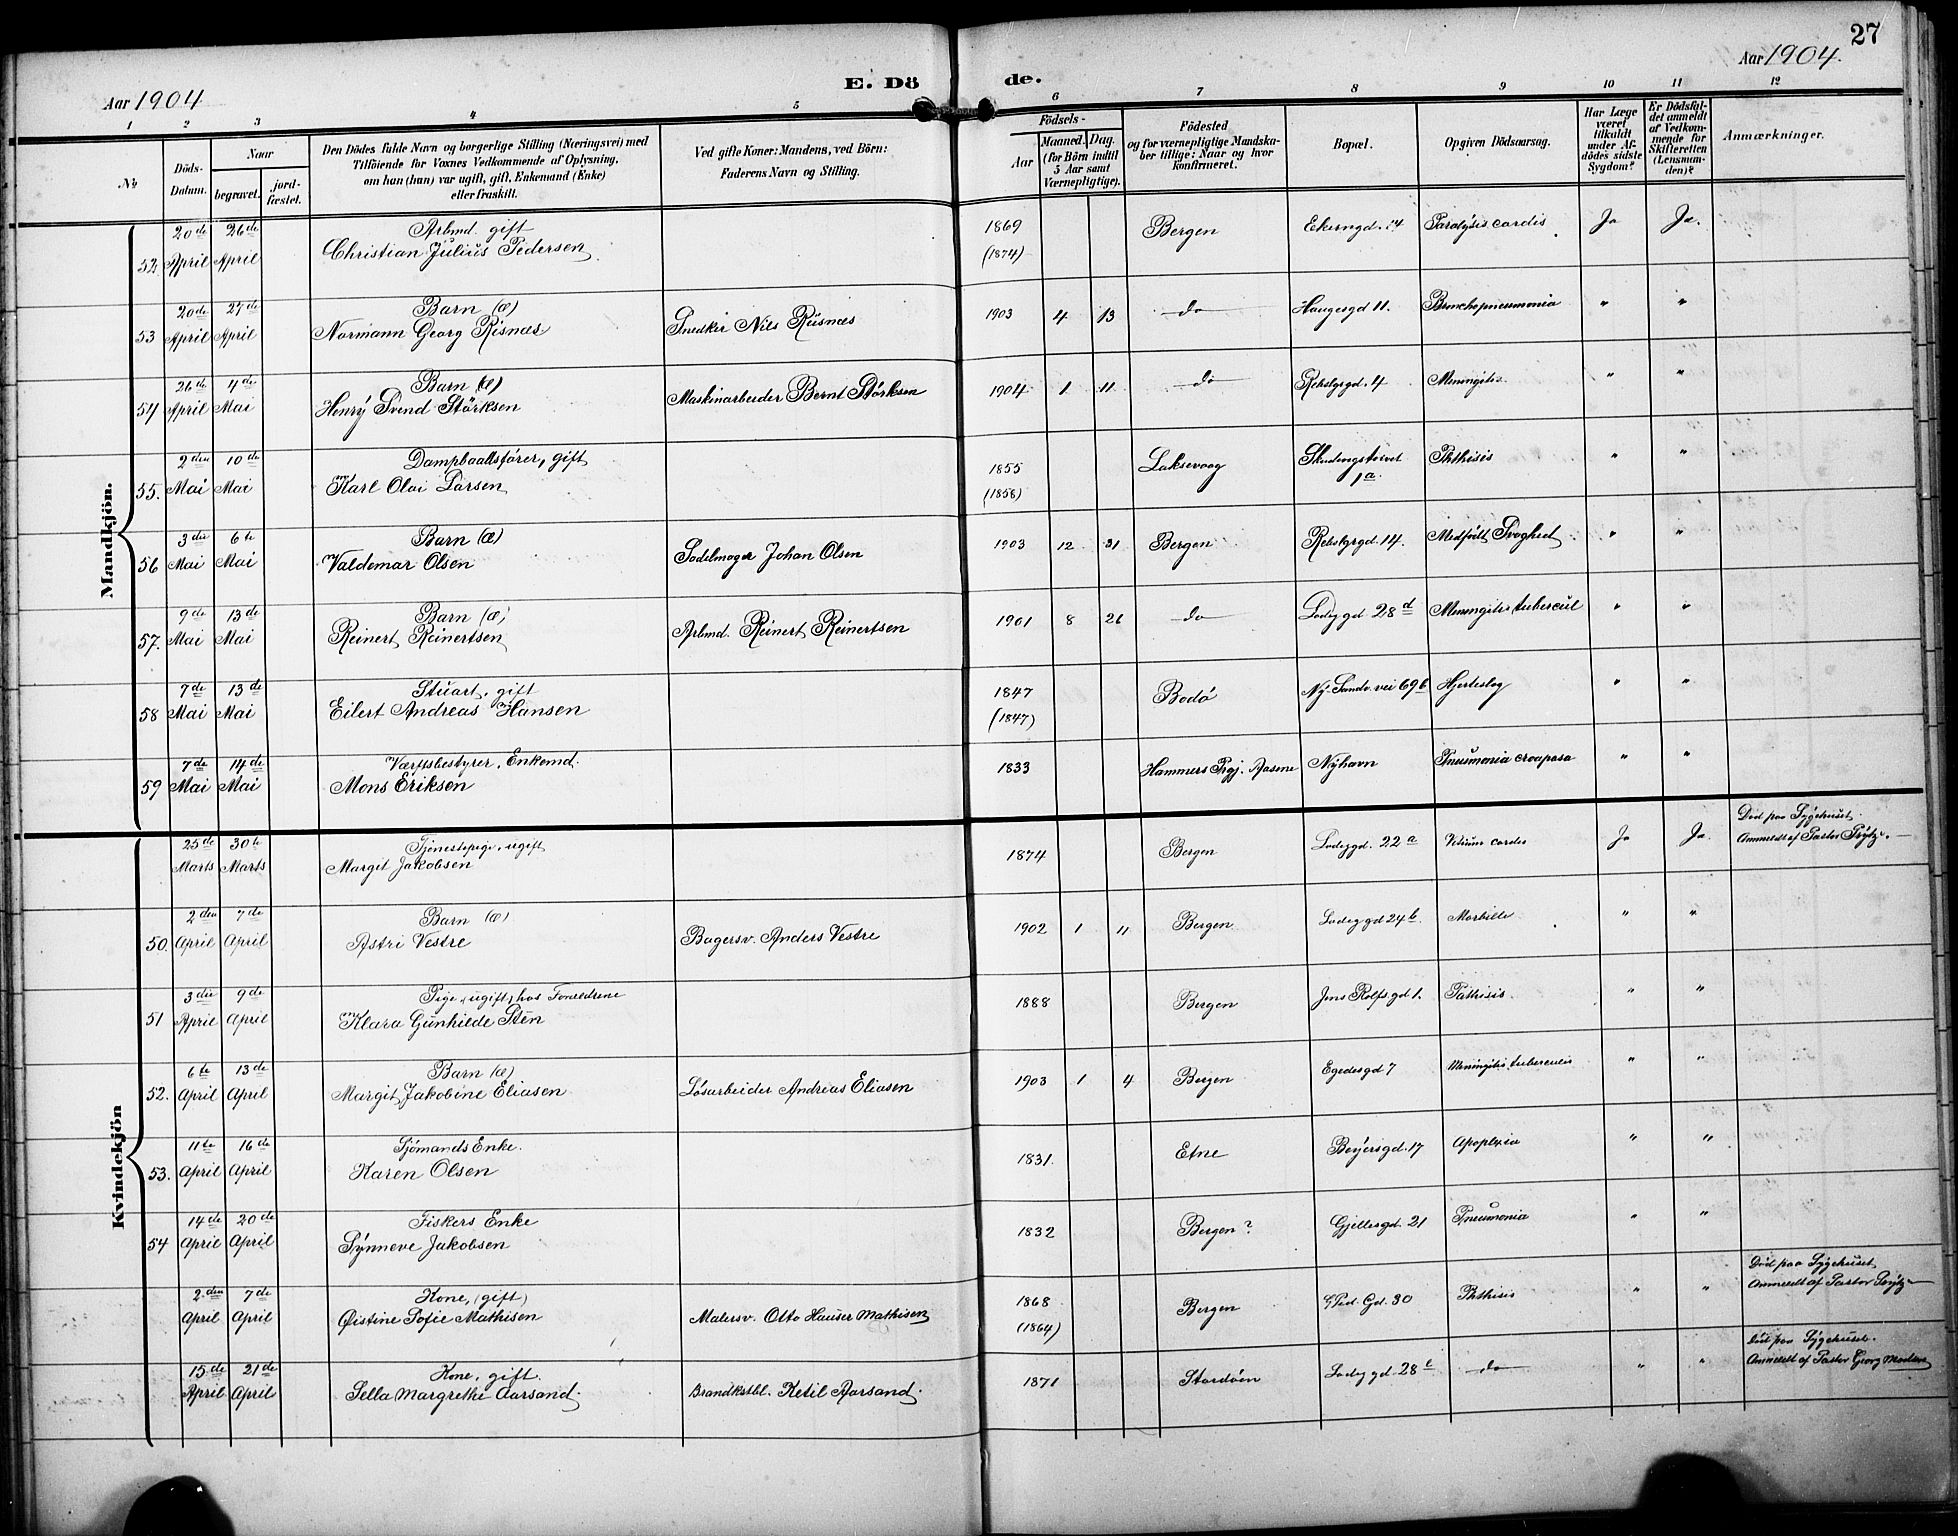 27
Aar 1904
E. Dö de.
Aar 1904.
1 2 3 4 5 6 7 8 9 10 11 12
No
Döds-Datum.
Naar
begravet.
jord-fæstet.
Den Dödes fulde Navn og borgerlige Stilling (Næringsvei) med
Tilföiende for Voxnes Vedkommende af Oplysning,
om han (hun) var ugift, gift, Enkemand (Enke)
eller fraskilt.
Ved gifte Koner: Mandens, ved Börn:
Faderens Navn og Stilling.
Födsels-
Aar
Maaned. Dag.
(for Börn indtil
5 Aar samt
Værnepligtige).
Födested
og for værnepligtige Mandska-
ber tillige: Naar og hvor
konfirmeret.
Bopæl.
Opgiven Dödsaarsag.
Har Læge
været
tilkaldt
under Af-
dödes sidste
Sygdom?
Er Dödsfal-
det anmeldt
af Vedkom-
mende for
Skifteretten
(Lensman-
den)?
Anmærkninger.
Mandkjön.
52 20de April 26de April Arbmd. gift
Christian Julius Pedersen 1869 (1874) Bergen Ekerngd. 14 Paralysis cordis Ja Ja.
53 20de April 27de April Barn (æ)
Normann Georg Risnæs Snedker Nils Risnæs 1903 4 13 do Haugesgd 11. Bronchopneumonia " "
54 26de April 4de Mai Barn (æ)
Henrÿ Svend Störksen Maskinarbeider Bernt Störksen 1904 1 11 do Rebslgrgd. 4 Meningitis " "
55. 2den Mai 10de Mai Dampbaadsfører, gift
Karl Olai Larsen 1855 (1856) Laksevaag 1a Phthisis " "
56 3die Mai 6te Mai Barn (æ)
Valdemar Olsen Sadelmager Johan Olsen 1903 12 31 Bergen Rebslgrgd. 14. Medfödt Svaghed " "
57. 9de Mai 13de Mai Barn (æ)
Reinert Reinertsen Arbmd. Reinert Reinertsen 1901 8 26 do Ladeggd 28d Meningitis tubercul " "
58 7de Mai 13de Mai Stuart, gift
Eilert Andreas Hansen 1847 (1847) Bodö Ny-Sandv. vei 69b Hjerteslag " "
59 7de Mai 14de Mai Værftsbestyrer, Enkemd.
Mons Eriksen 1833 Hammers Prgj. Aasene Nÿhavn Pneumonia crouposa " "
Kvindekjön
25de Marts 30te Marts Tjenestepige, ugift
Margit Jakobsen 1874 Bergen Ladeggd. 22a Vitium cordis Ja Ja. Död paa Sÿgehuset.
Anmeldt af Pastor Prÿtz.
50. 2den April 7de April Barn (æ)
Astri Vestre Bagersv. Anders Vestre 1902 1 11 Bergen Ladeggd 24b. Morbilli " "
51 3die April 9de April Pige, ugift, hos Forældrene
Klara Gunhilde Sten 1888 Bergen Jens Rolfsgd 1. Pathisis. " "
52. 6te April 13de April Barn (æ)
Margit Jakobine Eliasen Løsarbeider Andreas Eliasen 1903 1 4 Bergen Egedesgd 7 Meningitis tuberculis " "
53. 11te April 16de April Sjömands Enke.
Karen Olsen 1831. Etne Beÿersgd. 17 Apoplexia " "
54 14de April 20de April Fiskers Enke
Sÿnneve Jakobsen 1832 Bergen? Gjellesgd. 21 Pneumonia " "
2den April 7de April Kone, (gift)
Øistine Sofie Mathisen Malersv. Otto Hauser Mathisen 1868 (1864) Bergen Gd. 30 Phthisis " " Död paa Sÿgehuset,
Anmeldt af Pastor Prÿtz
15de April 21de April Kone, gift.
Sella Margrethe Aarsand. Brandkstbl. Ketil Aarsand. 1871 Stordöen Ladeggd. 28 do " " Död paa Sÿgehuset.
Anmeldt af Pastor Georg